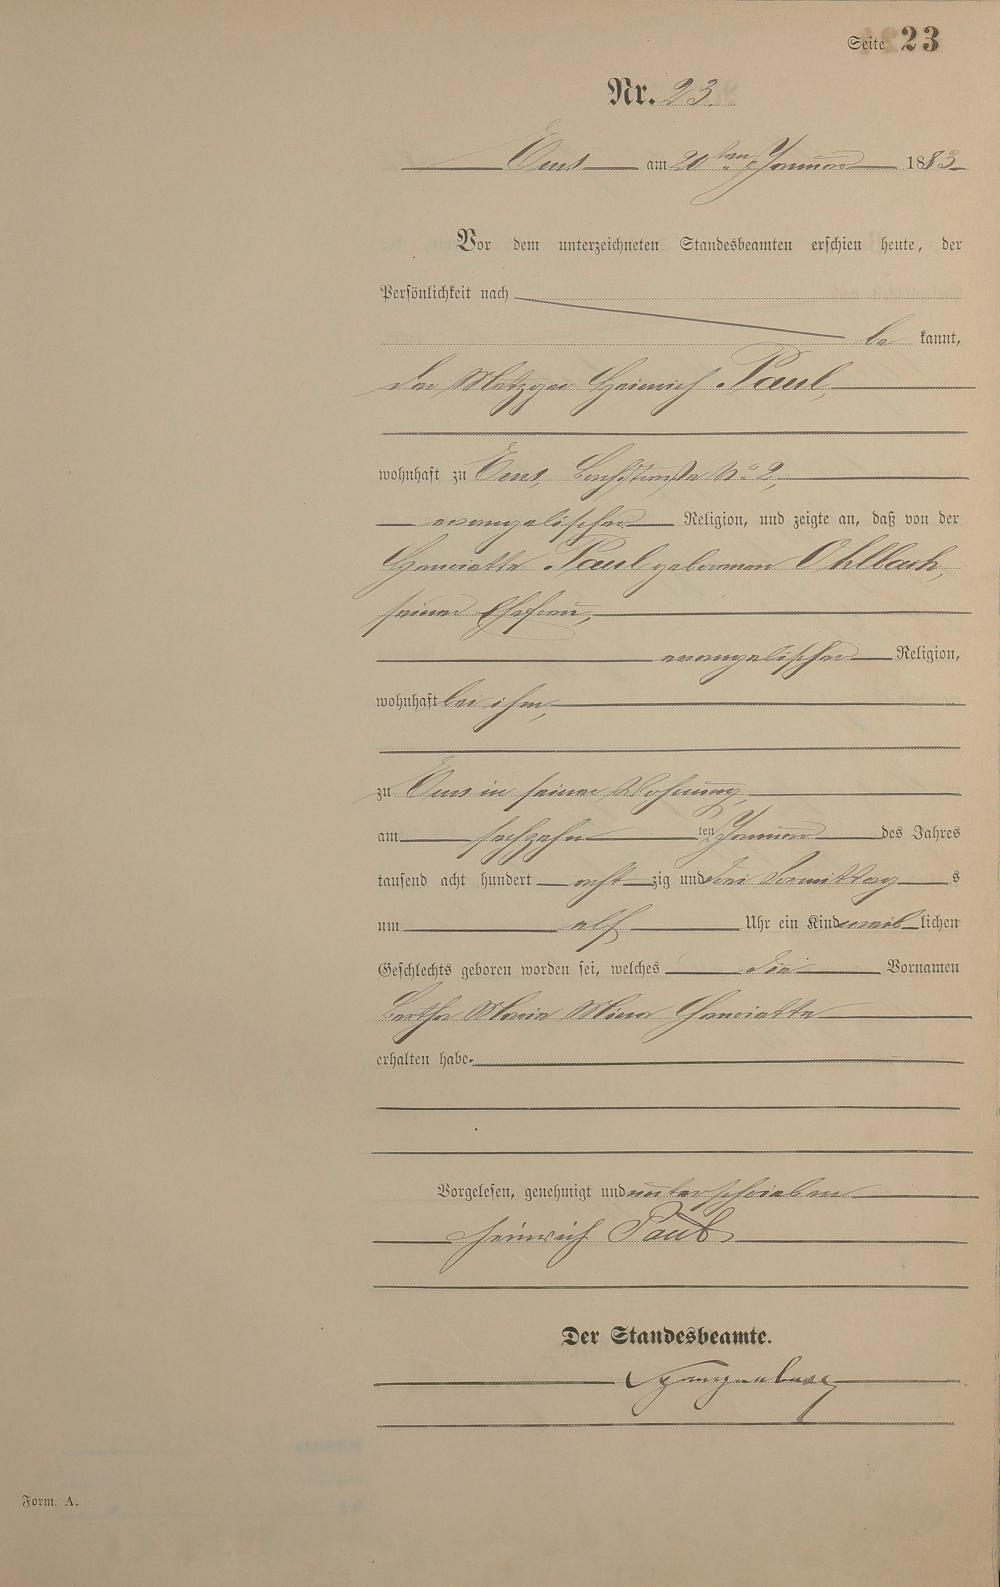 Seite 23
Nr. 23.
Ems am 20ten Januar 1883
Vor dem unterzeichneten Standesbeamten erschien heute, der
Persönlichkeit nach
be kannt,
der Metzger Heinrich Paul,
wohnhaft zu Ems, Bachstraße No 2,
evangelischer Religion, und zeigte an, daß von der
Henriette Paul geborenen Ohlbach,
seiner Ehefrau,
evangelischer Religion,
wohnhaft bei ihm,
zu Ems in seiner Wohnung,
am sechzehn ten Januar des Jahres
tausend acht hundert acht zig und drei Vormittag s
um elf Uhr ein Kind weib lichen
Geschlechts geboren worden sei, welches die Vornamen
Bertha Maria Mina Henriette
erhalten habe.
Vorgelesen, genehmigt und unterschrieben
Heinrich Paul
Der Standesbeamte.
Form. A.